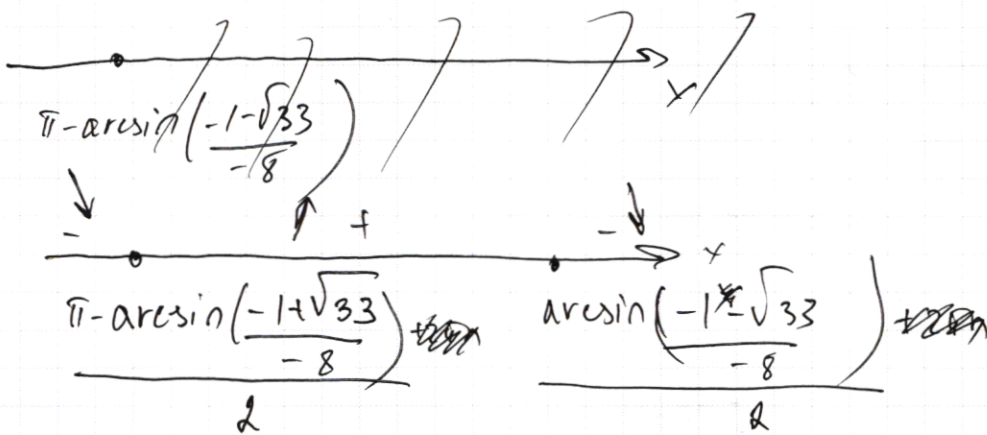 x
π-arcsin(-1-√33 / -8)
- + - x
π-arcsin(-1+√33 / -8) / 2 arcsin(-1-√33 / -8) / 2